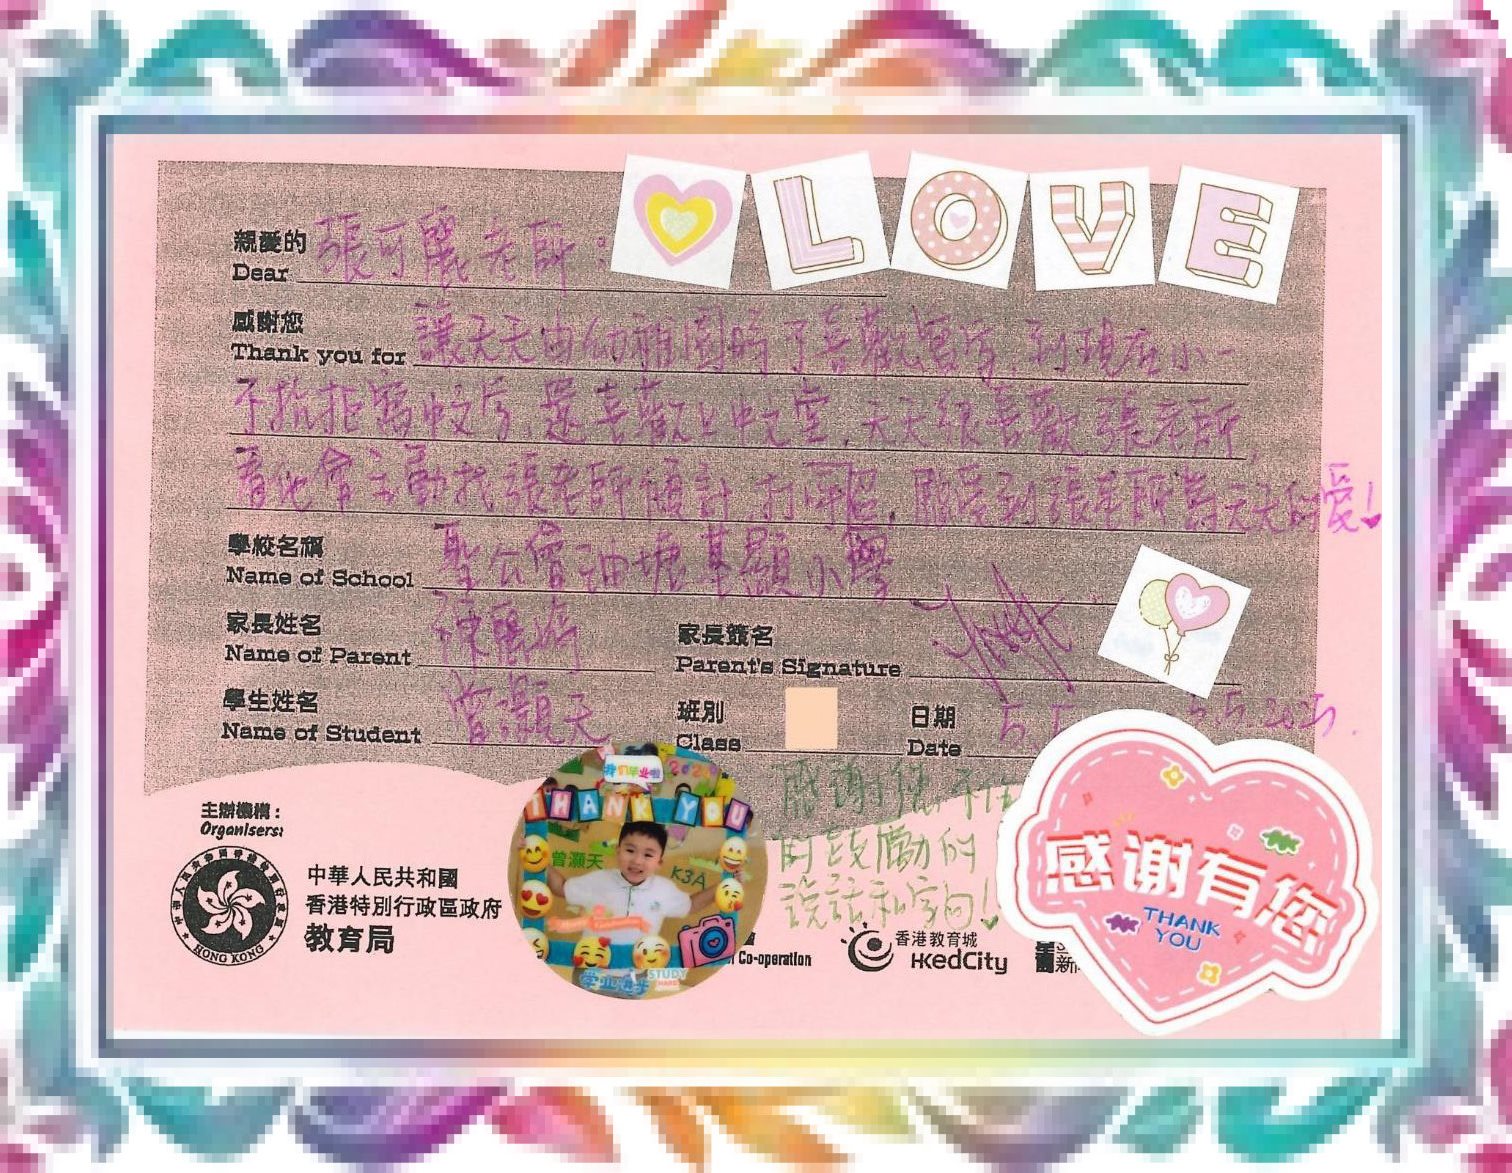 LOVE
親愛的 張可麗老師：
Dear
感謝您 讓天天由幼稚園時不喜歡寫字，到現在小一
Thank you for
不抗拒寫中文字，還喜歡上中文堂，天天很喜歡張老師，
會主動找張老師傾計，打呼 感受到張老師 天天的愛！
學校名稱 聖公會油塘基顯小學
Name of School
家長姓名 陳麗
Name of Parent
家長簽名
Parent's Signature
學生姓名 曾灝天
Name of Student
班別
Class
日期 5.5
Date
5.5.2025.
感謝您
的鼓勵的
說話和字句！
主辦機構：
Organisers:
HONG KONG
中華人民共和國
香港特別行政區政府
教育局
我们毕业啦
THANK YOU
曾灝天
K3A
STUDY
HARD
Co-operation
香港教育城
HKedCity
感谢有您
THANK
YOU